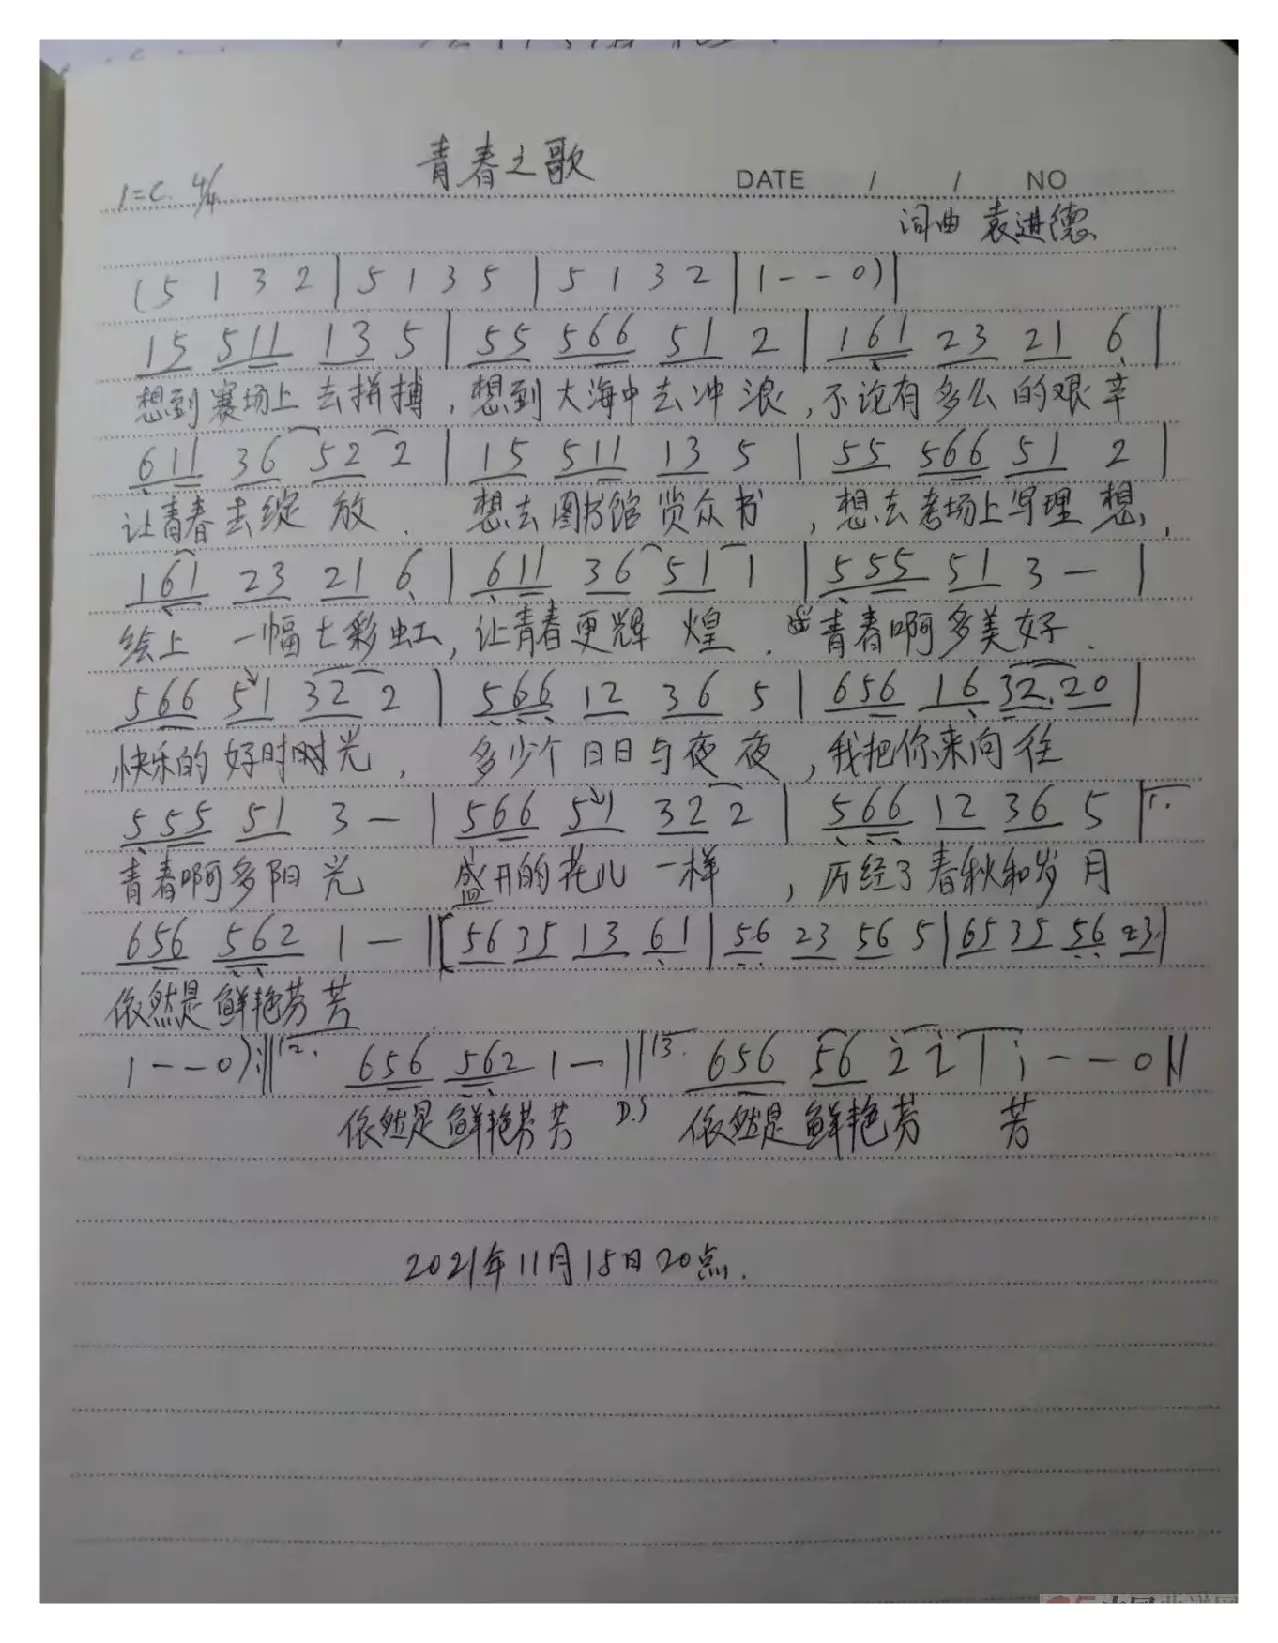 青春之歌
1=C. 4/4
DATE / / NO
词曲 袁进德
(5 1 3 2 | 5 1 3 5 | 5 1 3 2 | 1 - - 0) |
15 511 13 5 | 55 566 51 2 | 161 23 21 6 |
想到赛场上去拼搏,想到大海中去冲浪,不论有多么的艰辛
611 36 52 2 | 15 511 13 5 | 55 566 51 2 |
让青春去绽放. 想去图书馆赏众书,想去考场上写理想,
161 23 21 6 | 611 36 51 1 | 555 51 3 - |
绘上 一幅七彩虹,让青春更辉煌. 青春啊多美好.
566 51 32 2 | 566 12 36 5 | 656 16 32.20 |
快乐的好时时光, 多少个日日与夜夜,我把你来向往
555 51 3 - | 566 51 32 2 | 566 12 36 5 | 1.
青春啊多阳光 盛开的花儿一样,历经了春秋和岁月
656 562 1 - || [56 35 13 61 | 56 23 56 5 | 65 35 56 23 |
依然是鲜艳芬芳
1 - - 0) :|| 2. 656 562 1 - || 3. 656 56 2 2 | 1 - - 0 ||
依然是鲜艳芬芳 D.S 依然是鲜艳芬 芳
2021年11月15日20点.